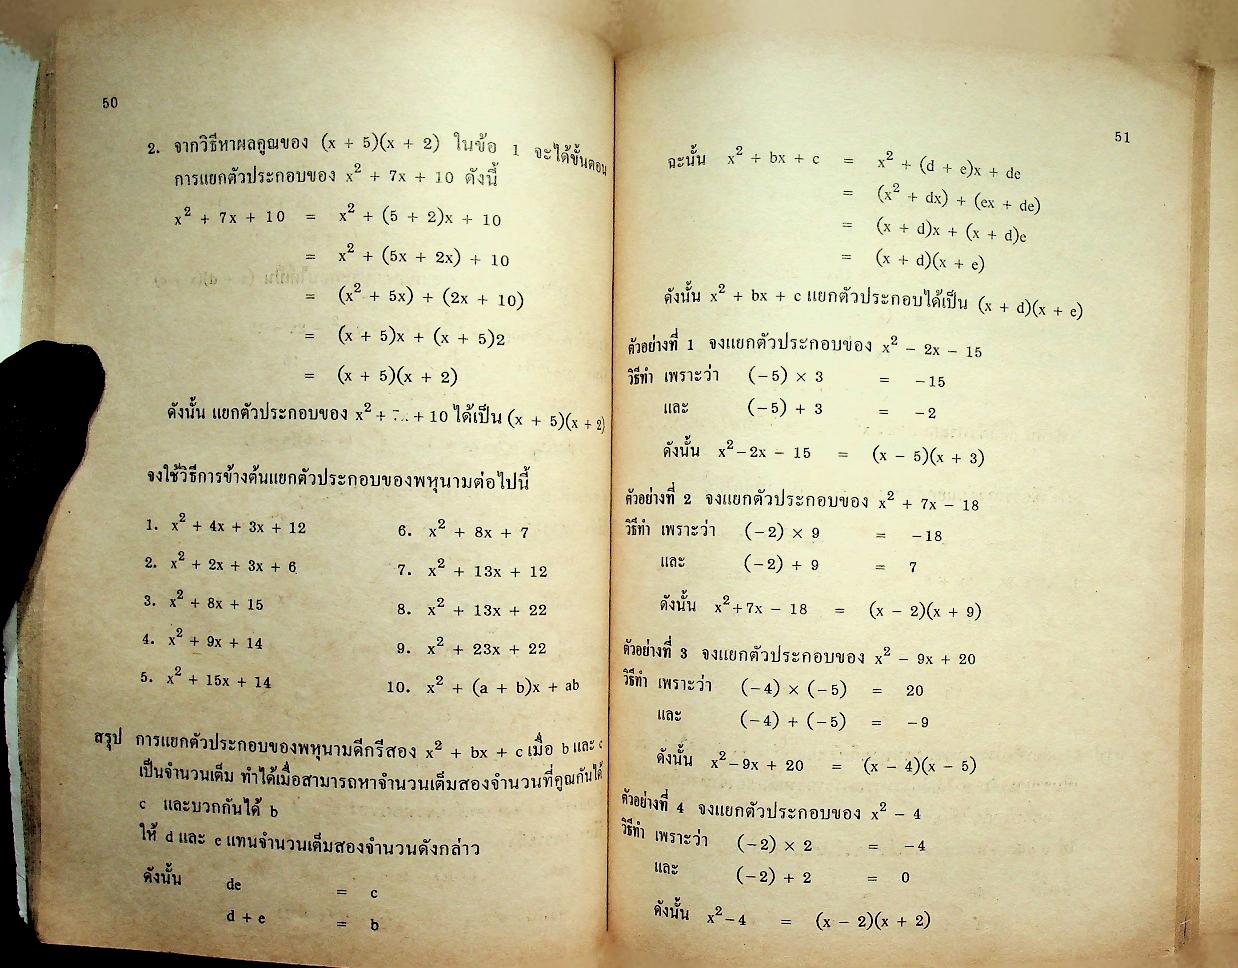 50
2. จากวิธีหาผลคูณของ (x + 5)(x + 2) ในข้อ 1 จะได้ขั้นตอน
การแยกตัวประกอบของ x² + 7x + 10 ดังนี้
x² + 7x + 10 = x² + (5 + 2)x + 10
= x² + (5x + 2x) + 10
= (x² + 5x) + (2x + 10)
= (x + 5)x + (x + 5)2
= (x + 5)(x + 2)
ดังนั้น แยกตัวประกอบของ x² + + 10 ได้เป็น (x + 5)(x + 2)
จงใช้วิธีการข้างต้นแยกตัวประกอบของพหุนามต่อไปนี้
1. x² + 4x + 3x + 12
2. x² + 2x + 3x + 6
3. x² + 8x + 15
4. x² + 9x + 14
5. x² + 15x + 14
6. x² + 8x + 7
7. x² + 13x + 12
8. x² + 13x + 22
9. x² + 23x + 22
10. x² + (a + b)x + ab
สรุป การแยกตัวประกอบของพหุนามดีกรีสอง x² + bx + c เมื่อ b และ c
เป็นจำนวนเต็ม ทำได้เมื่อสามารถหาจำนวนเต็มสองจำนวนที่คูณกันได้
c และบวกกันได้ b
ให้ d และ e แทนจำนวนเต็มสองจำนวนดังกล่าว
ดังนั้น de = c
d + e = b
51
ฉะนั้น x² + bx + c = x² + (d + e)x + de
= (x² + dx) + (ex + de)
= (x + d)x + (x + d)e
= (x + d)(x + e)
ดังนั้น x² + bx + c แยกตัวประกอบได้เป็น (x + d)(x + e)
ตัวอย่างที่ 1 จงแยกตัวประกอบของ x² − 2x − 15
วิธีทำ เพราะว่า (−5) × 3 = −15
และ (−5) + 3 = −2
ดังนั้น x²−2x − 15 = (x − 5)(x + 3)
ตัวอย่างที่ 2 จงแยกตัวประกอบของ x² + 7x − 18
วิธีทำ เพราะว่า (−2) × 9 = −18
และ (−2) + 9 = 7
ดังนั้น x²+7x − 18 = (x − 2)(x + 9)
ตัวอย่างที่ 3 จงแยกตัวประกอบของ x² − 9x + 20
วิธีทำ เพราะว่า (−4) × (−5) = 20
และ (−4) + (−5) = −9
ดังนั้น x²−9x + 20 = (x − 4)(x − 5)
ตัวอย่างที่ 4 จงแยกตัวประกอบของ x² − 4
วิธีทำ เพราะว่า (−2) × 2 = −4
และ (−2) + 2 = 0
ดังนั้น x²−4 = (x − 2)(x + 2)